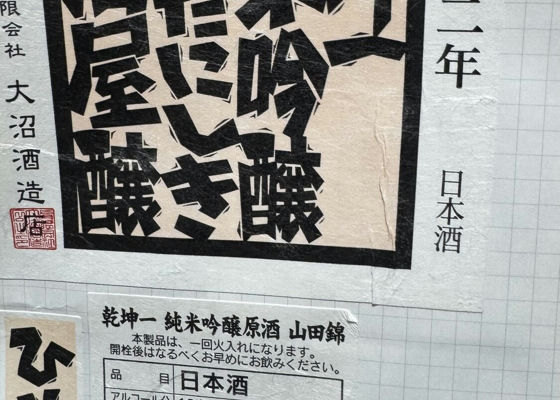 二年
日本酒
吟醸
だしき
屋醸
限会社
大沼酒造
乾坤一 純米吟醸原酒 山田錦
本製品は、一回火入れになります。
開栓後はなるべくお早めにお飲みください。
品 目 日本酒
アルコール分
ひ